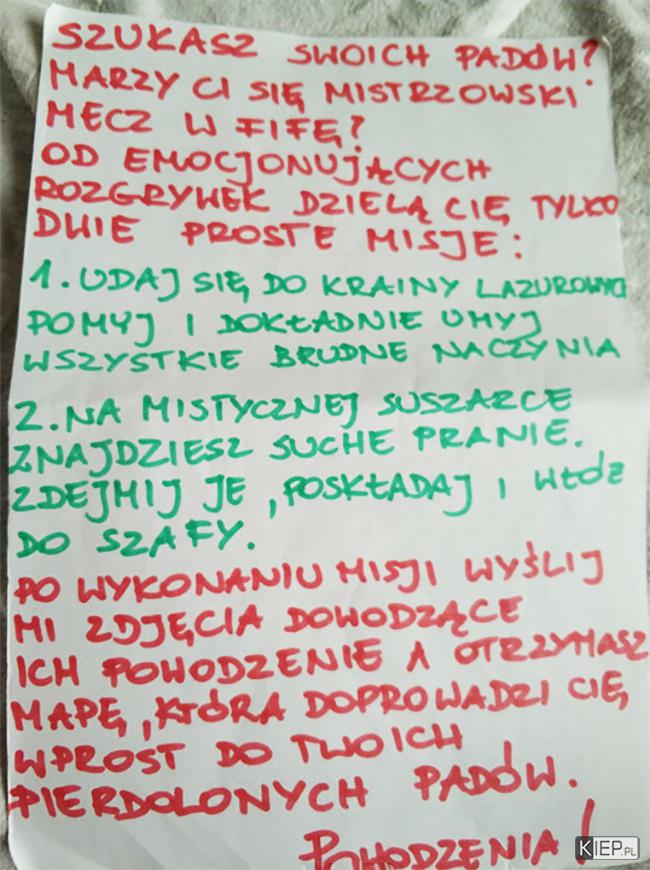 SZUKASZ SWOICH PADÓW?
MARZY CI SIĘ MISTRZOWSKI
MECZ W FIFĘ?
OD EMOCJONUJĄCYCH
ROZGRYWEK DZIELĄ CIĘ TYLKO
DWIE PROSTE MISJE:
1. UDAJ SIĘ DO KRAINY LAZUROWYCH
POMYJ I DOKŁADNIE UMYJ
WSZYSTKIE BRUDNE NACZYNIA
2. NA MISTYCZNEJ SUSZARCE
ZNAJDZIESZ SUCHE PRANIE.
ZDEJMIJ JE, POSKŁADAJ I WŁÓŻ
DO SZAFY.
PO WYKONANIU MISJI WYŚLIJ
MI ZDJĘCIA DOWODZĄCE
ICH POWODZENIE A OTRZYMASZ
MAPĘ, KTÓRA DOPROWADZI CIĘ
WPROST DO TWOICH
PIERDOLONYCH PADÓW.
POWODZENIA!
KIEP.PL